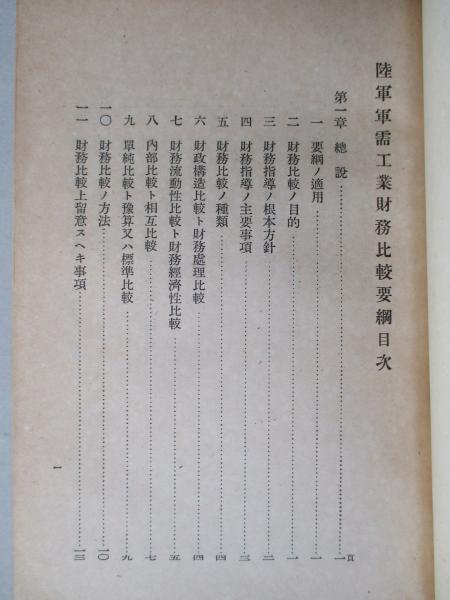 陸軍軍需工業財務比較要綱目次
頁
第一章 總說…………一
一 要綱ノ適用…………一
二 財務比較ノ目的…………一
三 財務指導ノ根本方針…………二
四 財務指導ノ主要事項…………三
五 財務比較ノ種類…………四
六 財政構造比較ト財務處理比較…………四
七 財務流動性比較ト財務經濟性比較…………五
八 內部比較ト相互比較…………七
九 單純比較ト豫算又ハ標準比較…………九
一〇 財務比較ノ方法…………一〇
一一 財務比較上留意スヘキ事項…………一三
一